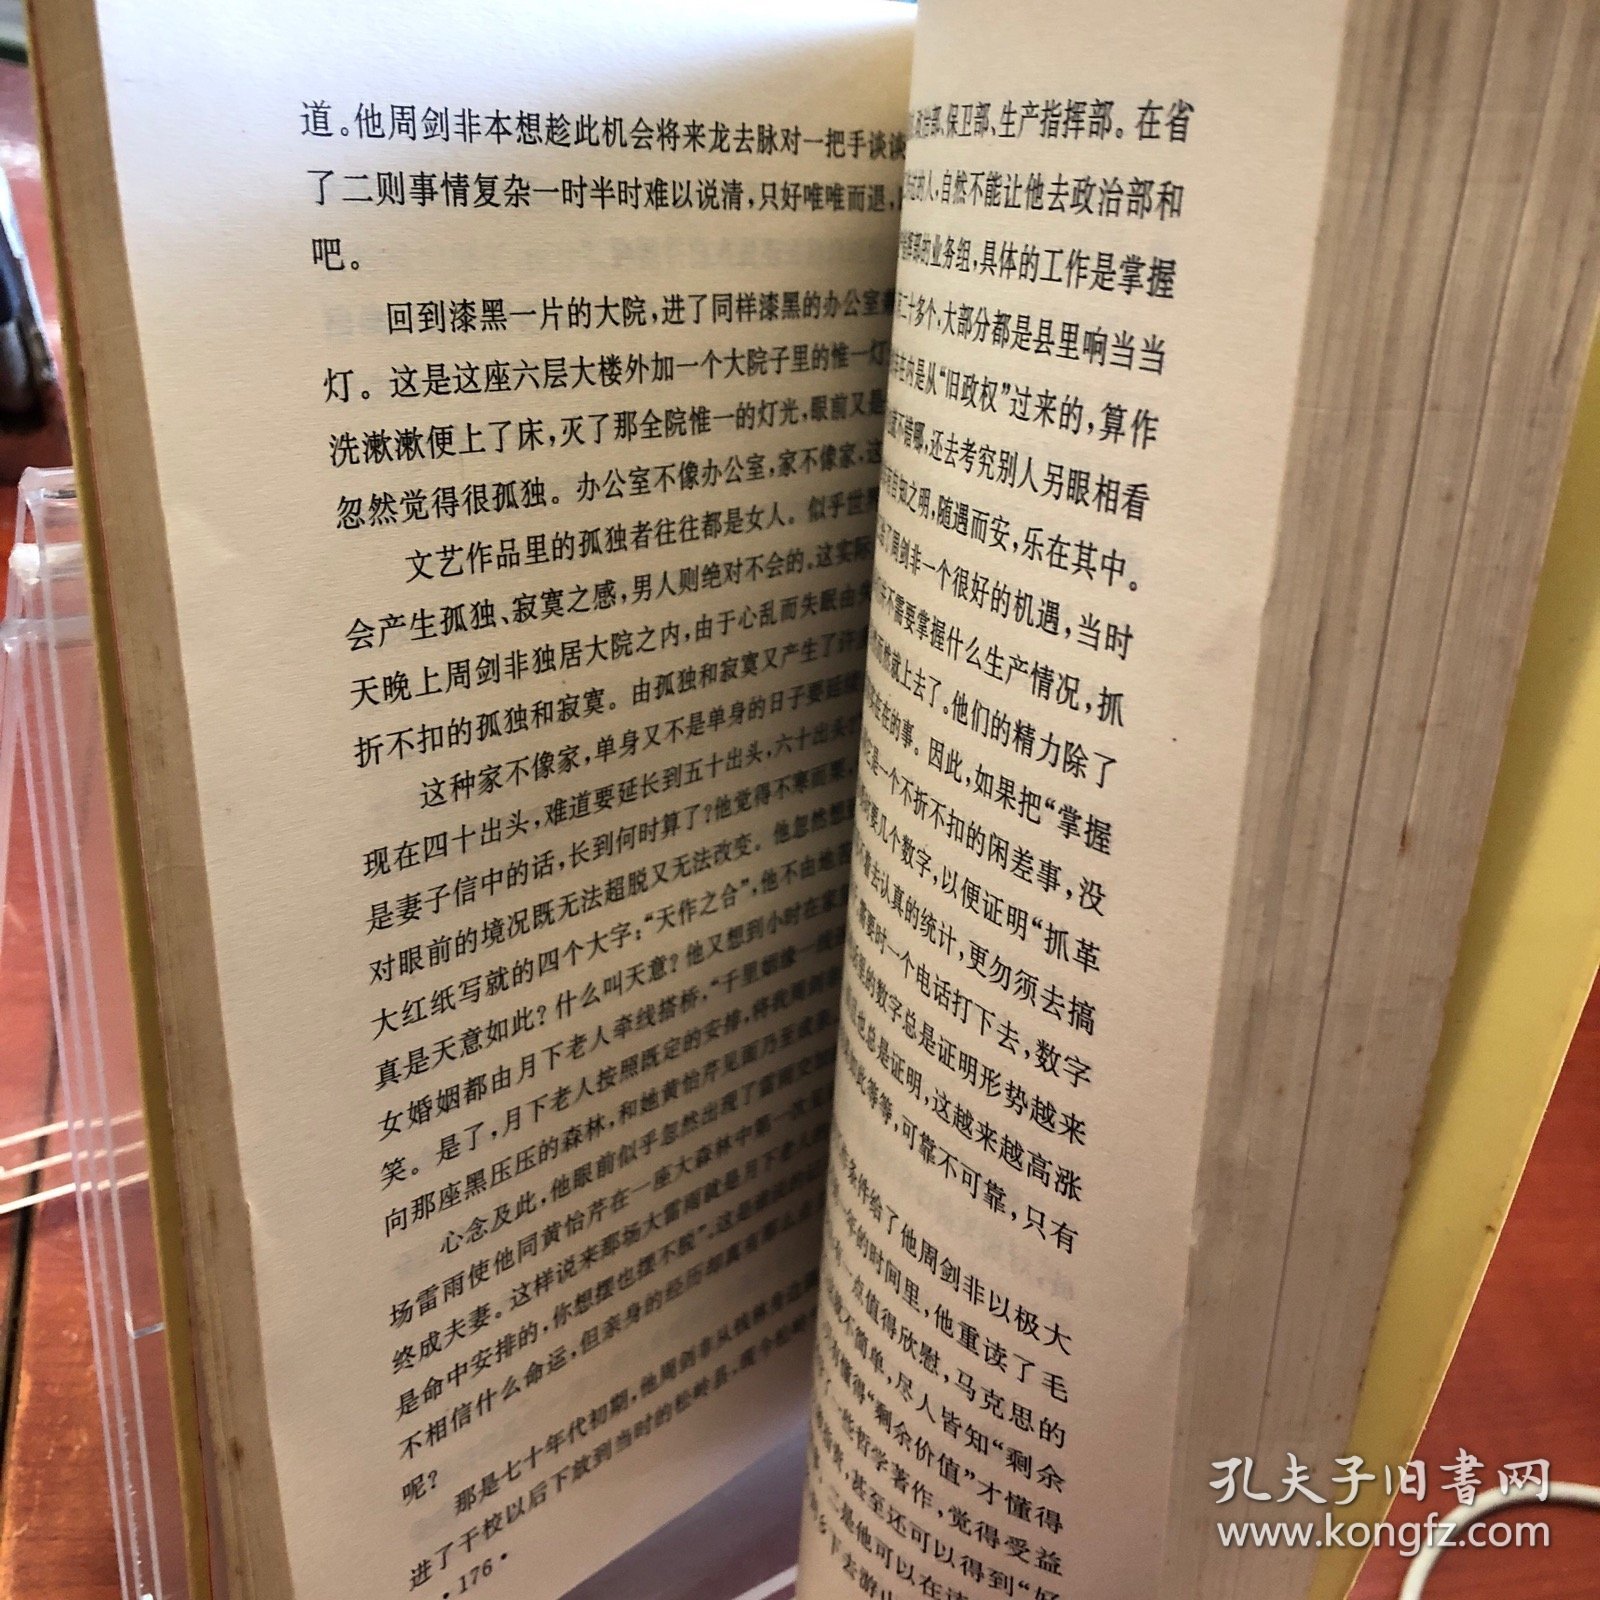 道。他周剑非本想趁此机会将来龙去脉对一把手谈谈
了二则事情复杂一时半时难以说清,只好唯唯而退,
吧。
回到漆黑一片的大院,进了同样漆黑的办公室兼
灯。这是这座六层大楼外加一个大院子里的惟一灯
洗漱漱便上了床,灭了那全院惟一的灯光,眼前又是
忽然觉得很孤独。办公室不像办公室,家不像家,这
文艺作品里的孤独者往往都是女人。似乎世
会产生孤独、寂寞之感,男人则绝对不会的,这实际
天晚上周剑非独居大院之内,由于心乱而失眠由失
折不扣的孤独和寂寞。由孤独和寂寞又产生了许
这种家不像家,单身又不是单身的日子要延续
现在四十出头,难道要延长到五十出头,六十出头
是妻子信中的话,长到何时算了?他觉得不寒而栗,
对眼前的境况既无法超脱又无法改变。他忽然想
大红纸写就的四个大字:“天作之合”,他不由地
真是天意如此?什么叫天意?他又想到小时在家
女婚姻都由月下老人牵线搭桥,“千里姻缘一线
笑。是了,月下老人按照既定的安排,将我周剑非
向那座黑压压的森林,和她黄怡芹见面乃至成亲
心念及此,他眼前似乎忽然出现了雷雨交加
场雷雨使他同黄怡芹在一座大森林中第一次见
终成夫妻。这样说来那场大雷雨就是月下老人的
是命中安排的,你想摆也摆不脱”,这是谁说的
不相信什么命运,但亲身的经历却真有那么
呢?
那是七十年代初期,他周剑非从钱林身边
进了干校以后下放到当时的松岭县,现今松岭
·176·
政治部、保卫部、生产指挥部。在省
的人,自然不能让他去政治部和
指挥部的业务组,具体的工作是掌握
二十多个,大部分都是县里响当当
在内是从“旧政权”过来的,算作
不错哪,还去考究别人另眼相看
有自知之明,随遇而安,乐在其中。
给了周剑非一个很好的机遇,当时
并不需要掌握什么生产情况,抓
而然就上去了。他们的精力除了
实在在的事。因此,如果把“掌握
是一个不折不扣的闲差事,没
要几个数字,以便证明“抓革
去认真的统计,更勿须去搞
需要时一个电话打下去,数字
里的数字总是证明形势越来
也总是证明,这越来越高涨
如此等等,可靠不可靠,只有
条件给了他周剑非以极大
一年的时间里,他重读了毛
有一点值得欣慰,马克思的
就不简单,尽人皆知“剩余
有懂得“剩余价值”才懂得
了一些哲学著作,觉得受益
甚至还可以得到“好
二是他可以在读
下去游山
孔夫子旧书网
www.kongfz.com